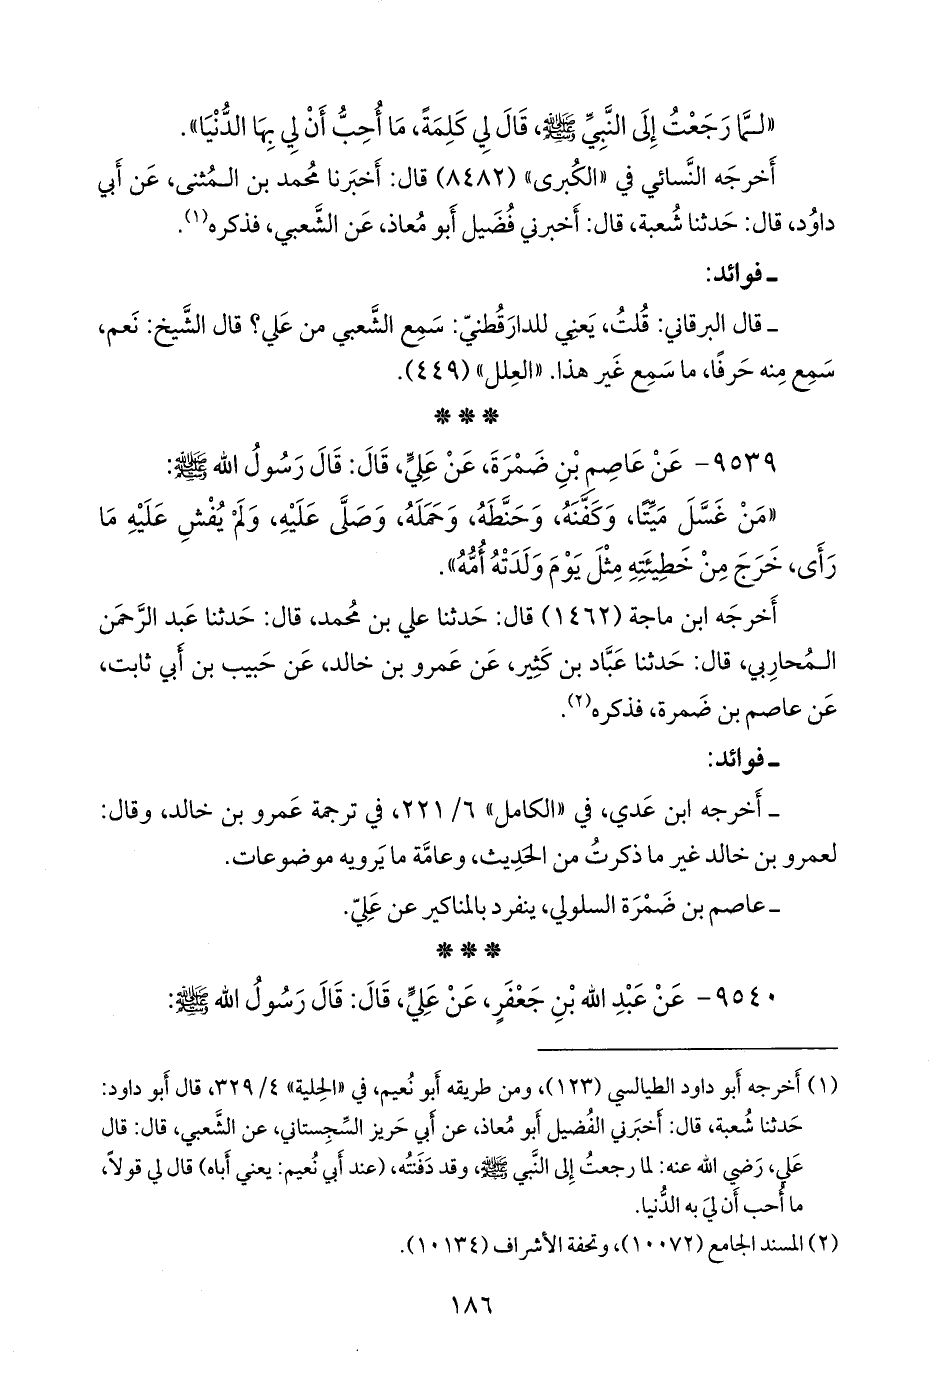 «لـمَّا رَجَعْتُ إِلَى النَّبِيِّ ﷺ، قَالَ لِي كَلِمَةً، مَا أُحِبُّ أَنْ لِي بِهَا الدُّنْيَا».
أَخرجَه النَّسائي في «الكُبرى» (٨٤٨٢) قال: أَخبَرنا مُحمد بن الـمُثنى، عَن أَبي
داوُد، قال: حَدثنا شُعبة، قال: أَخبرني فُضَيل أَبو مُعاذ، عَن الشَّعبي، فذكره(١).
ـ فوائد:
ـ قال البرقاني: قُلتُ، يَعنِي للدارَقُطنيّ: سَمِع الشَّعبي من عَلي؟ قال الشَّيخ: نَعم،
سَمِع مِنه حَرفًا، ما سَمِع غَير هذا. «العِلل» (٤٤٩).
* * *
٩٥٣٩- عَنْ عَاصِمِ بْنِ ضَمْرَةَ، عَنْ عَلِيٍّ، قَالَ: قَالَ رَسُولُ الله ﷺ:
«مَنْ غَسَّلَ مَيِّتًا، وَكَفَّنَهُ، وَحَنَّطَهُ، وَحَمَلَهُ، وَصَلَّى عَلَيْهِ، وَلَمْ يُفْشِ عَلَيْهِ مَا
رَأَى، خَرَجَ مِنْ خَطِيئَتِهِ مِثْلَ يَوْمَ وَلَدَتْهُ أُمُّهُ».
أَخرجَه ابن ماجة (١٤٦٢) قال: حَدثنا علي بن مُحمد، قال: حَدثنا عَبد الرَّحمَن
الـمُحارِبي، قال: حَدثنا عَبَّاد بن كَثِير، عَن عَمرو بن خالد، عَن حَبيب بن أَبي ثابت،
عَن عاصم بن ضَمرة، فذكره(٢).
ـ فوائد:
ـ أَخرجه ابن عَدي، في «الكامل» ٦/ ٢٢١، في ترجمة عَمرو بن خالد، وقال:
لعمرو بن خالد غير ما ذكرتُ من الحَدِيث، وعامَّة ما يَرويه موضوعات.
ـ عاصم بن ضَمْرَة السلولي، ينفرد بالمناكير عن عَلِيّ.
* * *
٩٥٤٠- عَنْ عَبْدِ الله بْنِ جَعْفَرٍ، عَنْ عَلِيٍّ، قَالَ: قَالَ رَسُولُ الله ﷺ:
(١) أَخرجه أَبو داود الطيالسي (١٢٣)، ومن طريقه أَبو نُعيم، في «الحِلية» ٤/ ٣٢٩، قال أَبو داود:
حَدثنا شُعبة، قال: أَخبَرني الفُضيل أَبو مُعاذ، عن أَبي حَريز السِّجِستاني، عن الشَّعبي، قال: قال
عَلي، رَضي الله عنه: لما رجعتُ إِلى النَّبي ﷺ، وقد دَفَنتُه، (عند أَبي نُعيم: يعني أَباه) قال لي قولاً،
ما أُحب أَن ليَ به الدُّنيا.
(٢) المسند الجامع (١٠٠٧٢)، وتحفة الأشراف (١٠١٣٤).
١٨٦